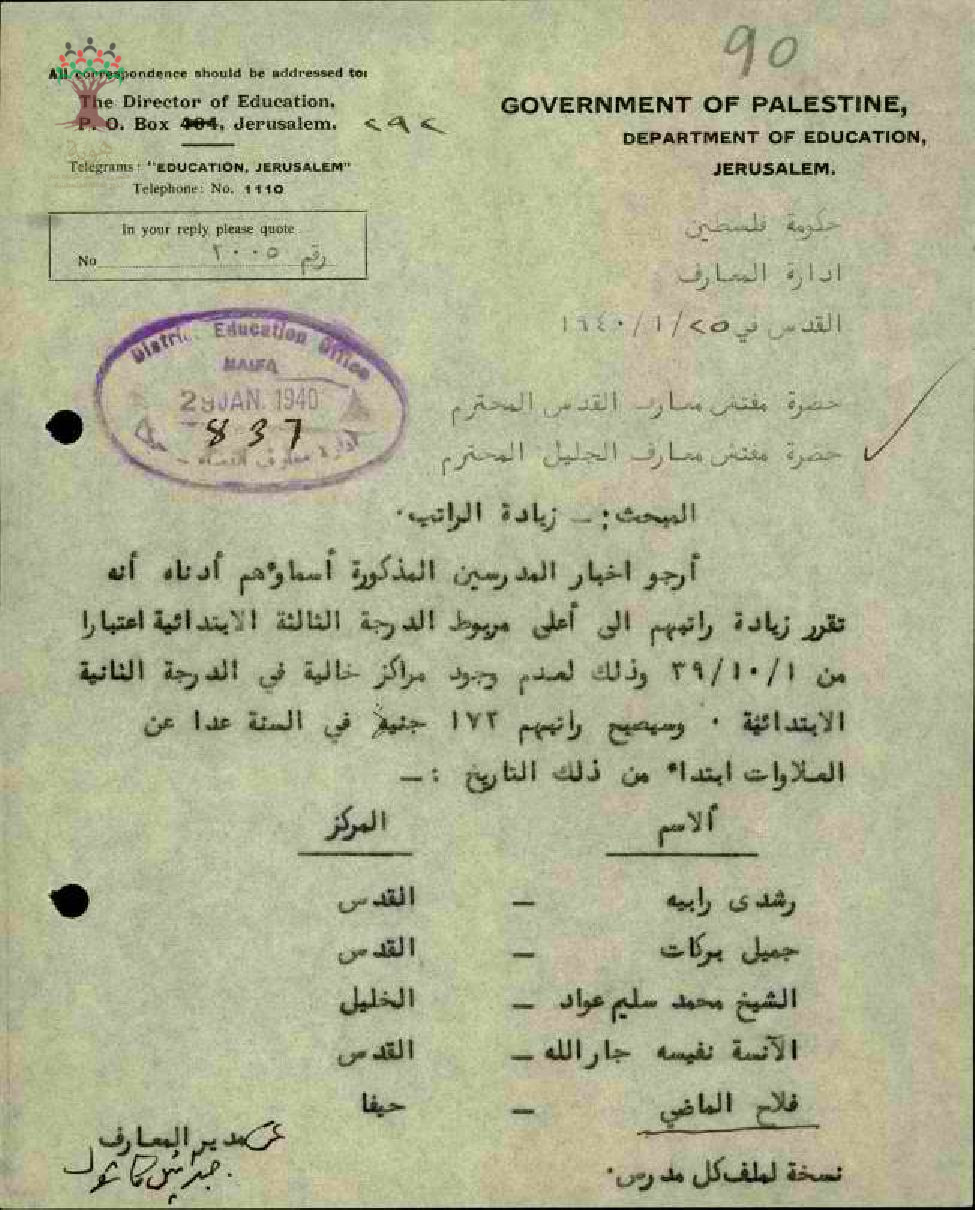 90
All correspondence should be addressed to:
The Director of Education,
P. O. Box 404, Jerusalem. ٢٩٢
Telegrams: "EDUCATION, JERUSALEM"
Telephone: No. 1110
In your reply please quote
No رقم ٢٠٠٥
GOVERNMENT OF PALESTINE,
DEPARTMENT OF EDUCATION,
JERUSALEM.
حكومة فلسطين
ادارة المعارف
القدس في ١٩٤٠/١/٢٥
District Education Office
HAIFA
29 JAN. 1940
837
حضرة مفتش معارف القدس المحترم
حضرة مفتش معارف الجليل المحترم
المبحث :ـ زيادة الراتب.
أرجو اخبار المدرسين المذكورة أسماؤهم أدناه أنه
تقرر زيادة راتبهم الى أعلى مربوط الدرجة الثالثة الابتدائية اعتبارا
من ٣٩/١٠/١ وذلك لعدم وجود مراكز خالية في الدرجة الثانية
الابتدائية . وسيصبح راتبهم ١٧٢ جنيه في السنة عدا عن
العلاوات ابتداء من ذلك التاريخ :ـ
الاسم المركز
رشدى رابيه ـ القدس
جميل بركات ـ القدس
الشيخ محمد سليم عواد ـ الخليل
الآنسة نفيسه جار الله ـ القدس
فلاح الماضي ـ حيفا
عن مدير المعارف
نسخة لملف كل مدرس.